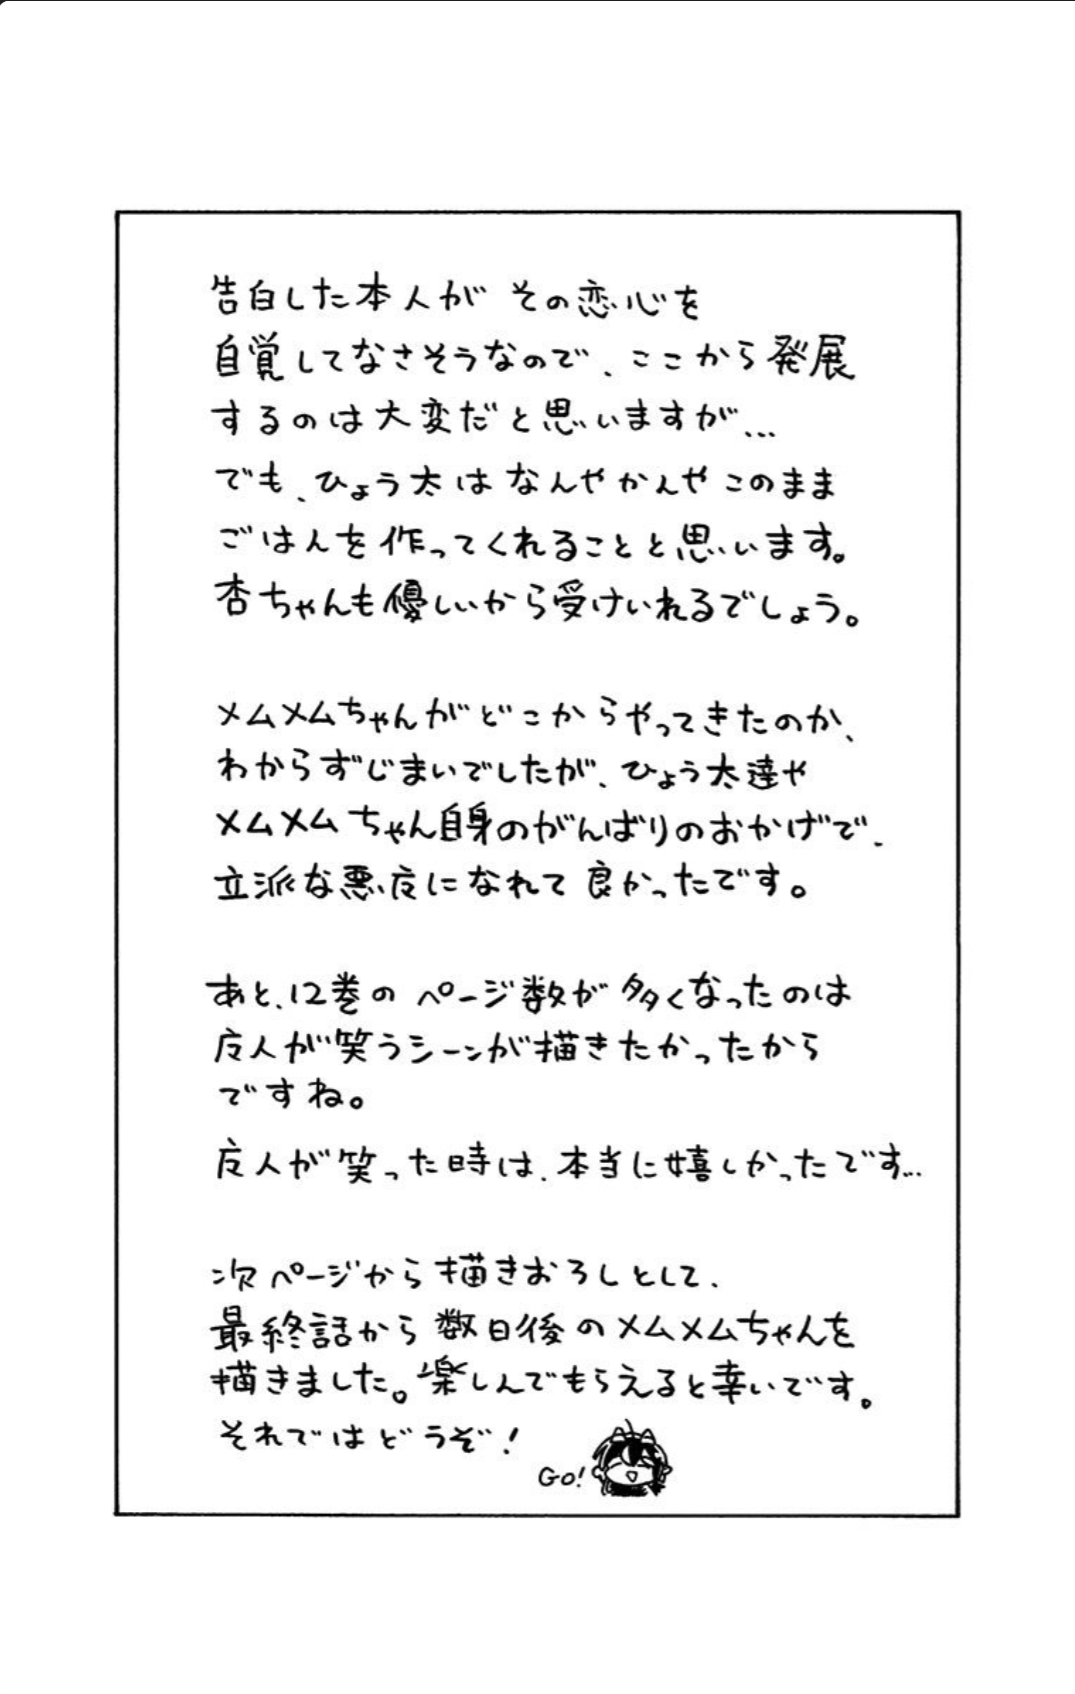 告白した本人が その恋心を
自覚してなさそうなので、ここから発展
するのは大変だと思いますが...
でも、ひょう太は なんやかんや このまま
ごはんを作ってくれることと思います。
杏ちゃんも優しいから受けいれるでしょう。
メムメムちゃんがどこからやってきたのか、
わからずじまいでしたが、ひょう太達や
メムメムちゃん自身のがんばりのおかげで、
立派な悪友になれて 良かったです。
あと、12巻の ページ数が 多くなったのは
友人が笑うシーンが描きたかったから
ですね。
友人が笑った時は、本当に嬉しかったです...
次ページから描きおろしとして、
最終話から数日後のメムメムちゃんを
描きました。楽しんでもらえると幸いです。
それではどうぞ!
Go!